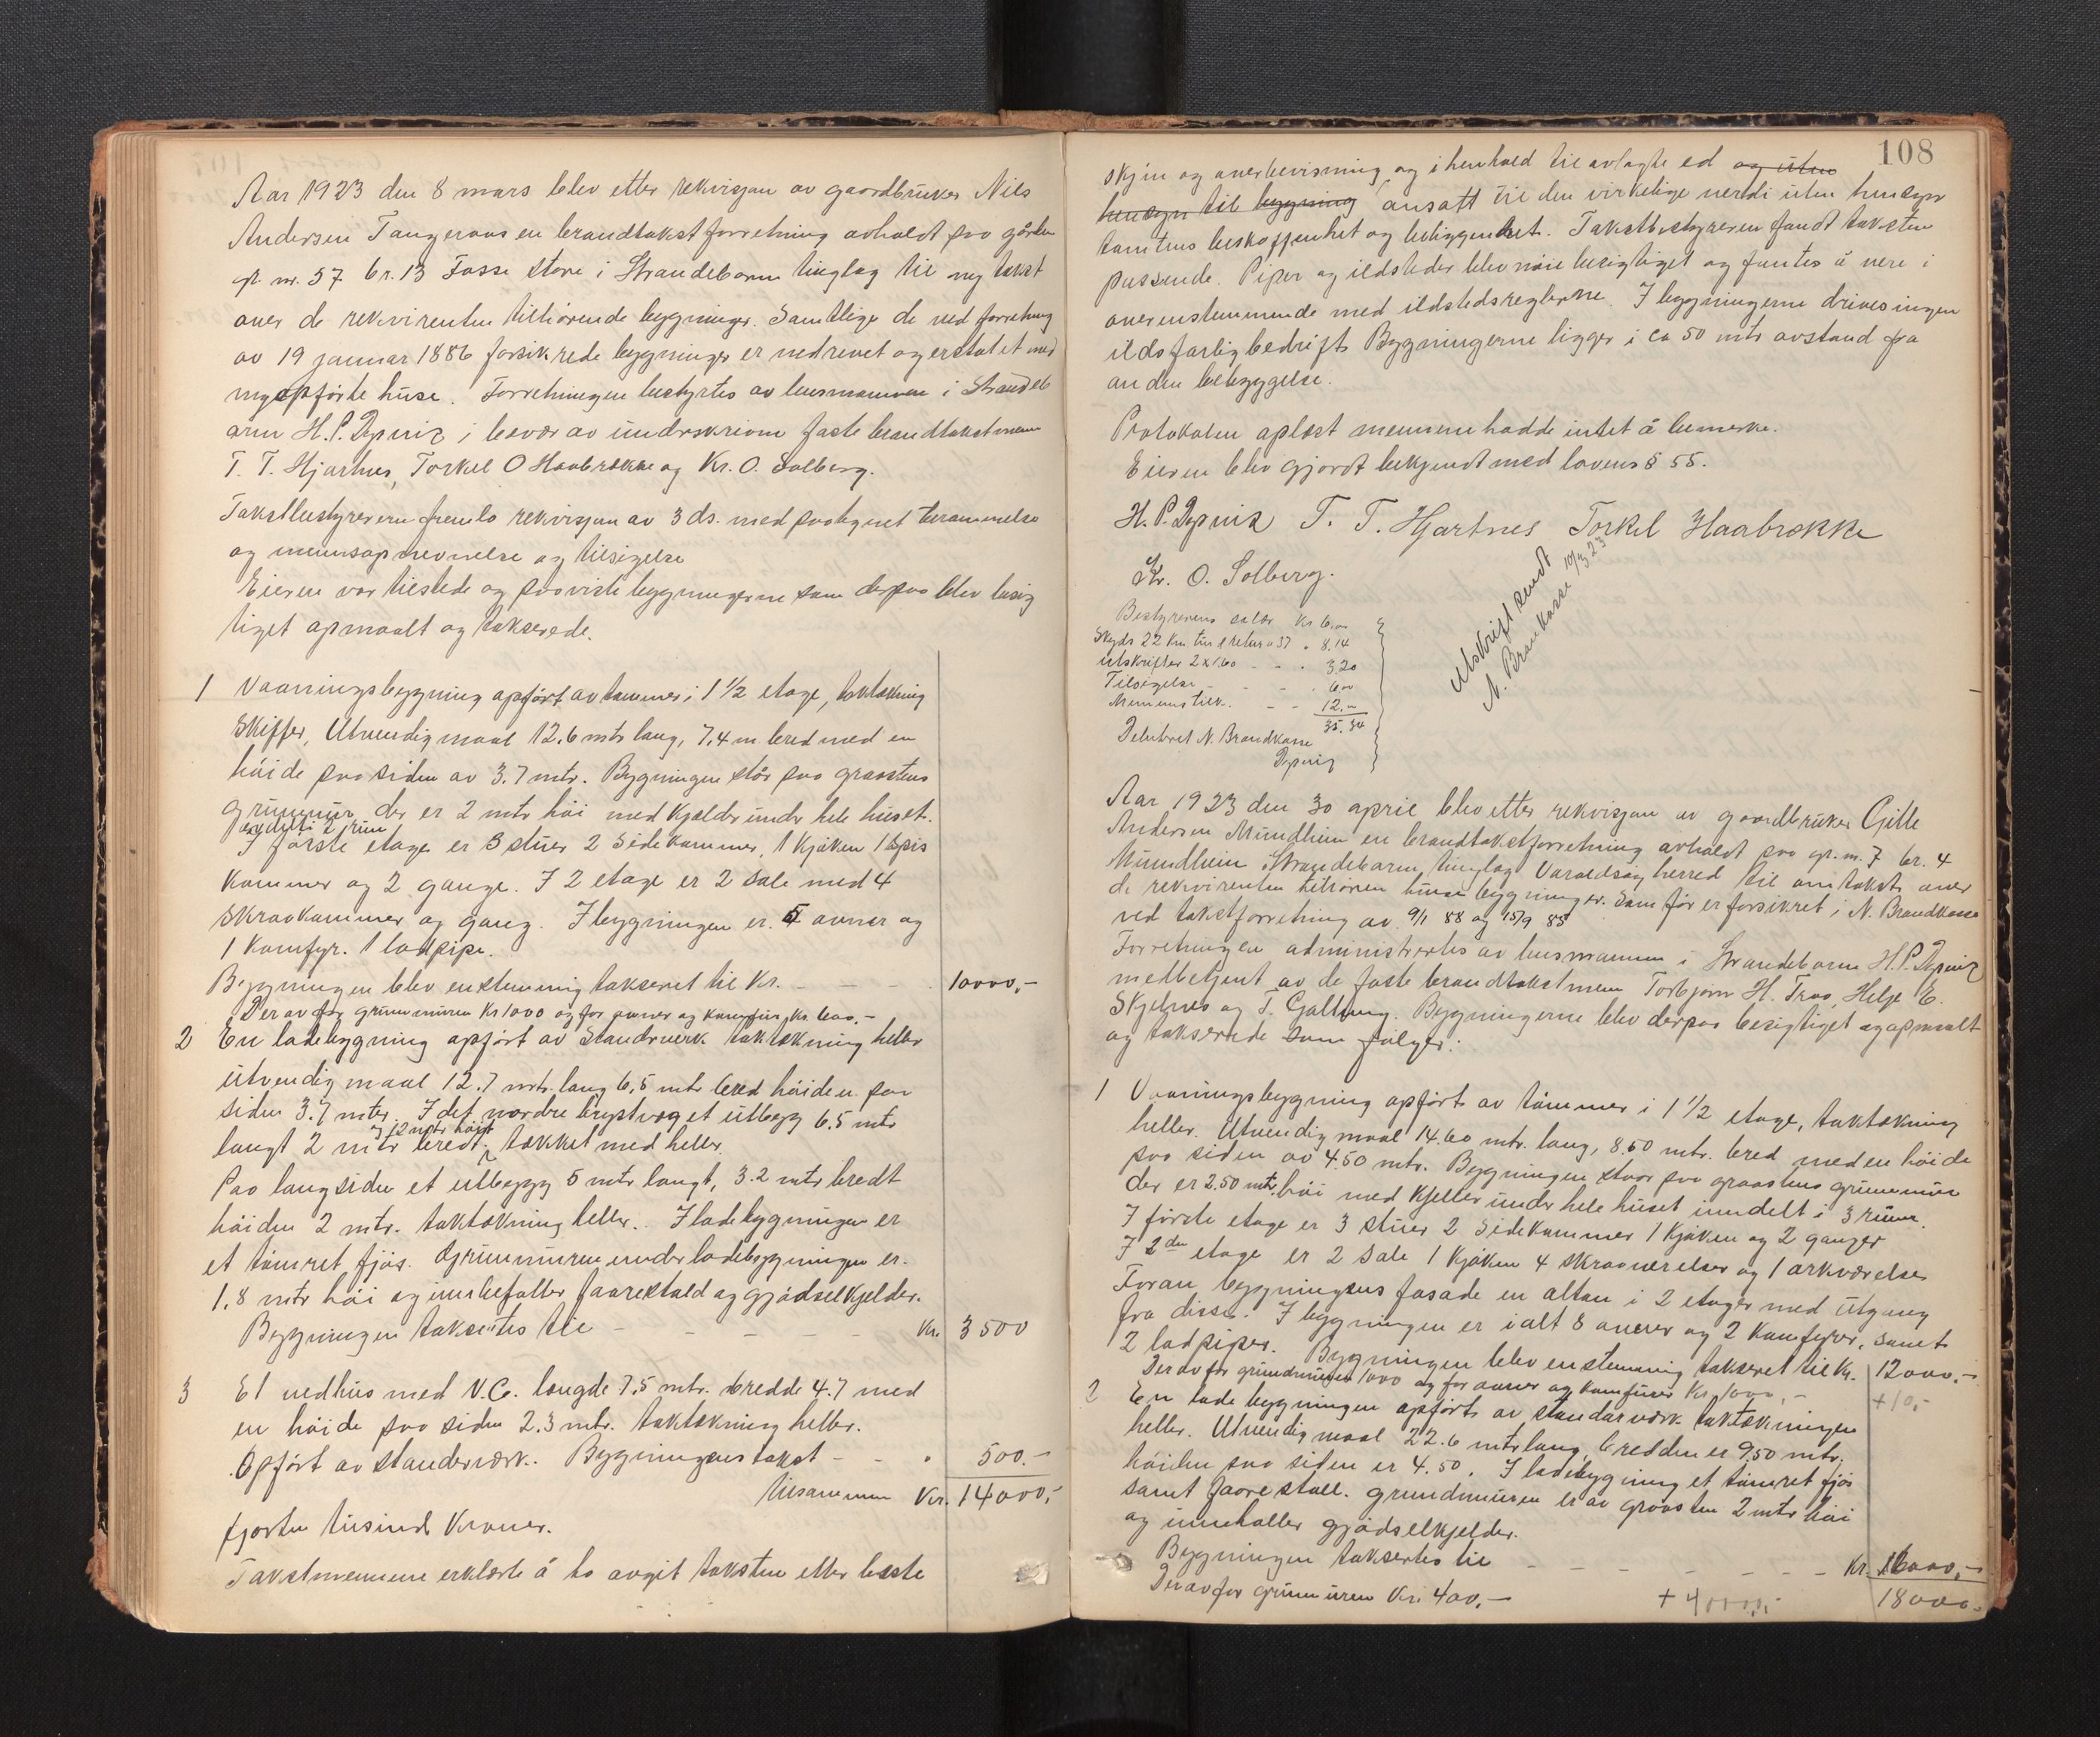 Aar 1923 den 8 mars blev etter rekvisjon av gaardbruker Nils
Andersen Tangeraas en brandtakstforretning avholdt paa gården
gr. nr. 57 br. 13 Fosse store i Strandebarm tinglag til ny takst
over de rekvirenten tilhörende bygninger. Samtlige de ved forretning
av 19 januar 1886 forsikrede bygninger er nedrevet og erstatet med
nyopförte huse. Forretningen bestyrtes av lensmannen i Strandeb
arm H.P. Djpvig i besvær av underskrivne faste brandtakstmenn
T. T. Hjartnes, Torkel O Haabrekke og Kr. O. Solberg.
Takstbestyreren fremla rekvisjon av 3 ds. med paategnet berammelse
og mennsopnevnelse og tilsigelse
Eieren var tilstede og paaviste bygningerne som derpaa blev besig
tiget opmaalt og takserede.
1 Vaaningsbygning opfört av tömmer i 1 1/2 etage, taktækning
Skiffer, Utvendig maal 12.6 mtr lang, 7,4 m bred med en
höide paa siden av 3.7 mtr. Bygningen står paa graastens
grunnmur der er 2 mtr höi med Kjelder under hele huset.
inddelt i 2 rum
I förste etage er 3 stuer 2 Sidekammer, 1 Kjöken 1 Spis
Kammer og 2 gange. I 2 etage er 2 Sale med 4
Skraakammer og gang. I bygningen er 5 ovner og
1 Komfyr. 1 ladpipe.
Bygningen blev enstemmig takseret til Kr. - - - 10000,-
Derav for grunnmuren Kr 1000 og for ovner og Komfur Kr. 600,-
2 En ladebygning opfört av Standverk taktækning heller
utvendig maal 12.7 mtr. lang 6,5 mtr bred höiden paa
siden 3.7 mter. I det nordre brystveg et utbygg 6.5 mtr
og 1,2 mtr höit
langt 2 mtr bredt, tækket med heller.
Paa langsiden et utbygg 5 mtr langt, 3.2 mtr bredt
höiden 2 mtr. taktækning heller. I ladebygningen er
et tömret fjös. Grunnmuren under ladebygningen er.
1,8 mtr höi og innbefatter faarestald og gjödselkjelder.
Bygningen taksertes til - - - - - Kr. 3500
3 Et vedhus med V.C. længde 7.5 mtr. bredde 4.7 med
en höide paa siden 2.3 mtr. taktækning heller.
Opfört av standerværk. Bygningens takst - - " 500.-
tilsammen Kr. 14000,-
fjorten tusind Kroner.
Takstmennene erklærte å ha avgit taksten etter beste
108
skjön og overbevisning og i henhold til avlagte ed og uten
hensyn til bygning ansatt til den virkelige verdi uten hensyn
tomtens beskaffenhet og beliggenhet. Takstbestyreren fandt taksten
passende. Piper og ildsteder blev nöie besigtiget og fantes å vere i
overenstemmende med ildstedsreglerne. I bygningerne drives ingen
ildsfarlig bedrift. Bygningerne ligger i ca 50 mtr avstand fra
anden bebyggelse.
Protokolen oplæst mennene hadde intet å bemerke.
Eieren blev gjordt bekjendt med lovens § 55.
H. P. Djpvig T. T. Hjartnes Torkel Haabrekke
Kr. O. Solberg.
Utskrift sendt
N. Brankasse 10/3 23
Bestyrerens salær Kr 6,00
Skyds 22 Km tur & retur a 37 " 8.14
utskrifter 2 x 1.60 - - " 3.20
Tilsigelse - - - " 6,00
Mennens tilk. - - 12.-
35.34
Debitert N. Brandkasse
Djpvig
Aar 1923 den 30 april blev etter rekvisjon av gaardbruker Gitle
Andersen Mundheim en brandtakstforretning avholdt paa gr. nr. 7 br. 4
Mundheim Strandebarm tinglag Varaldsøy herred til omtakst over
de rekvirenten tilhören huse bygninger. Som för er forsikret i N. Brandkasse
ved takstforretning av 9/1 88 og 15/9 85
Forretningen administrertes av lensmannen i Strandebarm H.P. Djpvig
medbetjent av de faste brandtakstmenn Torbjörn H. Traa, Helje E.
Skjelnes og T. Galtung. Bygningerne blev derpaa besigtiget og opmaalt
og takserede som fölger:
1 Vaaningsbygning opfört av tömmer i 1 1/2 etage, taktækning
heller. Utvendig maal 14.60 mtr. lang, 8.50 mtr. bred med en höide
paa siden av 4.50 mtr. Bygningen staar paa graastens grunnmur
der er 2.50 mtr. höi med Kjeller under hele huset inndelt i 3 rum.
I förste etage er 3 stuer 2 Sidekammer 1 Kjöken og 2 ganger
I 2den etage er 2 Sale 1 Kjöken 4 skraaværelser og 1 arkværelse
Foran bygningens fasade en altan i 2 etager med utgang
fra disse. I bygningen er ialt 8 ovner og 2 Komfyrer, samt
2 ladpiper. Bygningen blev enstemmig takseret til Kr. 12000.-
Derav for grundmuren 1000 og for ovner og Komfurer Kr. 1000,- +10,-
2 En lade bygningen opfört av standarverk taktækningen
heller. Utvendig maal 22.6 mtr lang, bredden er 9,50 mtr.
höiden paa siden er 4.50. I ladebygning et tömret fjös
samt faarestall. grundmuren er av graasten 2 mtr höi
og inneholler gjödselkjelder.
Bygningen taksertes til - - - - - - - Kr. 6000,-
Derav for grunnmuren Kr. 400,- + 4000,- 18000.-